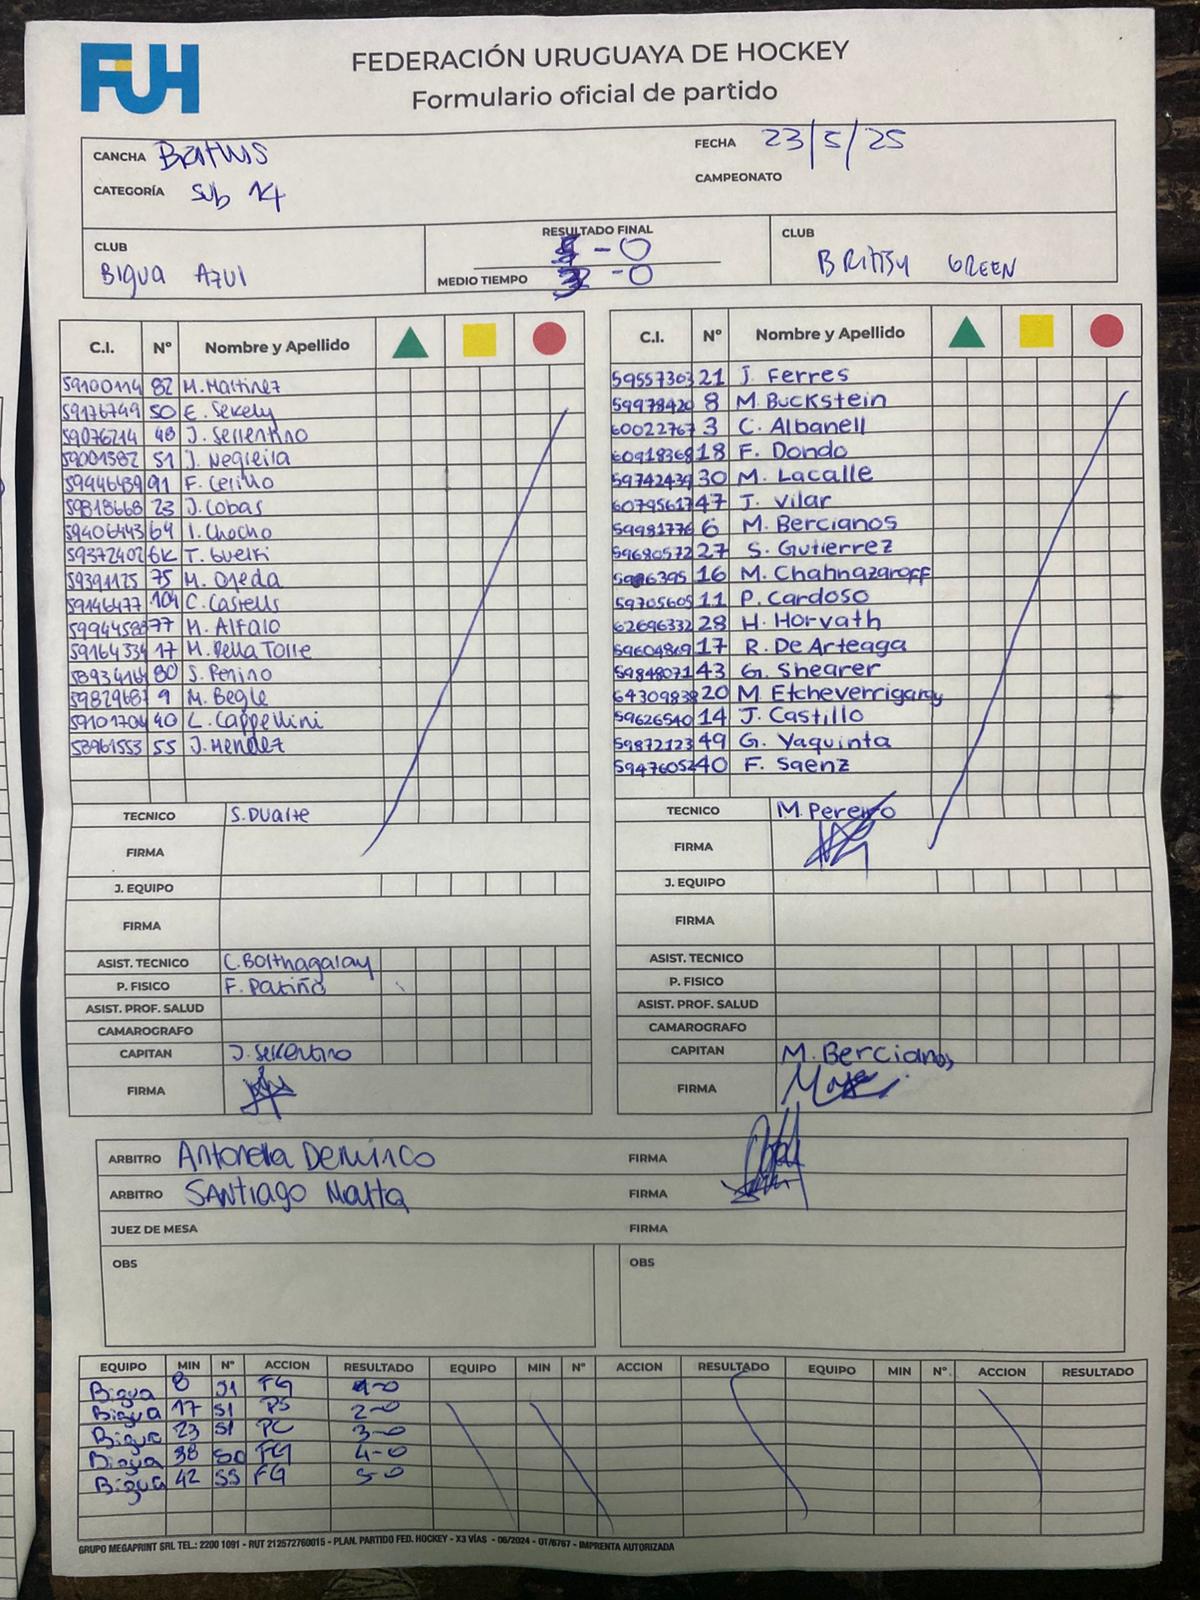 FUH
FEDERACIÓN URUGUAYA DE HOCKEY
Formulario oficial de partido
CANCHA
FECHA 23/5/25
CATEGORÍA Sub 14
CAMPEONATO
CLUB
Bigua Azul
RESULTADO FINAL
5 - 0
MEDIO TIEMPO 3 - 0
CLUB
BRITISH GREEN
C.I. Nº Nombre y Apellido
59100114 82 M. Martinez
59176749 50 E. Sekely
59076214 48 J. Serrentino
59001382 51 J. Negreira
59446439 91 F. Cerillo
59818668 23 J. Cobas
59406443 64 I. Chocho
59372402 T. Guerri
59391125 75 M. Ojeda
59146477 104 C. Castells
77 M. Alfaro
59164334 17 M. Della Torre
80 S. Perino
59829687 9 M. Begle
59101704 40 L. Cappellini
58961553 55 J. Mendez
TECNICO S. Duarte
FIRMA
J. EQUIPO
FIRMA
ASIST. TECNICO
P. FISICO F. Patiño
ASIST. PROF. SALUD
CAMAROGRAFO
CAPITAN J. Serrentino
FIRMA
C.I. Nº Nombre y Apellido
59557303 21 J. Ferres
59978420 8 M. Buckstein
60022767 3 C. Albanell
60918368 18 F. Dondo
59742439 30 M. Lacalle
60795617 47 J. Vilar
59981776 6 M. Bercianos
59680572 27 S. Gutierrez
16 M. Chahnazaroff
59705605 11 P. Cardoso
62696332 28 H. Horvath
59604869 17 R. De Arteaga
59848071 43 G. Shearer
64309838 20 M. Etcheverrigaray
59626540 14 J. Castillo
59872123 49 G. Yaquinta
59476052 40 F. Saenz
TECNICO M. Pereiro
FIRMA
J. EQUIPO
FIRMA
ASIST. TECNICO
P. FISICO
ASIST. PROF. SALUD
CAMAROGRAFO
CAPITAN M. Bercianos
FIRMA
ARBITRO Antonella FIRMA
ARBITRO SANTIAGO Matta FIRMA
JUEZ DE MESA FIRMA
OBS OBS
EQUIPO MIN Nº ACCION RESULTADO EQUIPO MIN Nº ACCION RESULTADO EQUIPO MIN Nº ACCION RESULTADO
Bigua 8 51 FG 1-0
Bigua 17 51 PS 2-0
Bigua 23 51 PC 3-0
Bigua 38 50 FG 4-0
Bigua 42 55 FG 5-0
GRUPO MEGAPRINT SRL TEL.: 2200 1091 - RUT 212572760015 - PLAN. PARTIDO FED. HOCKEY - X3 VÍAS - 06/2024 - OT/6767 - IMPRENTA AUTORIZADA